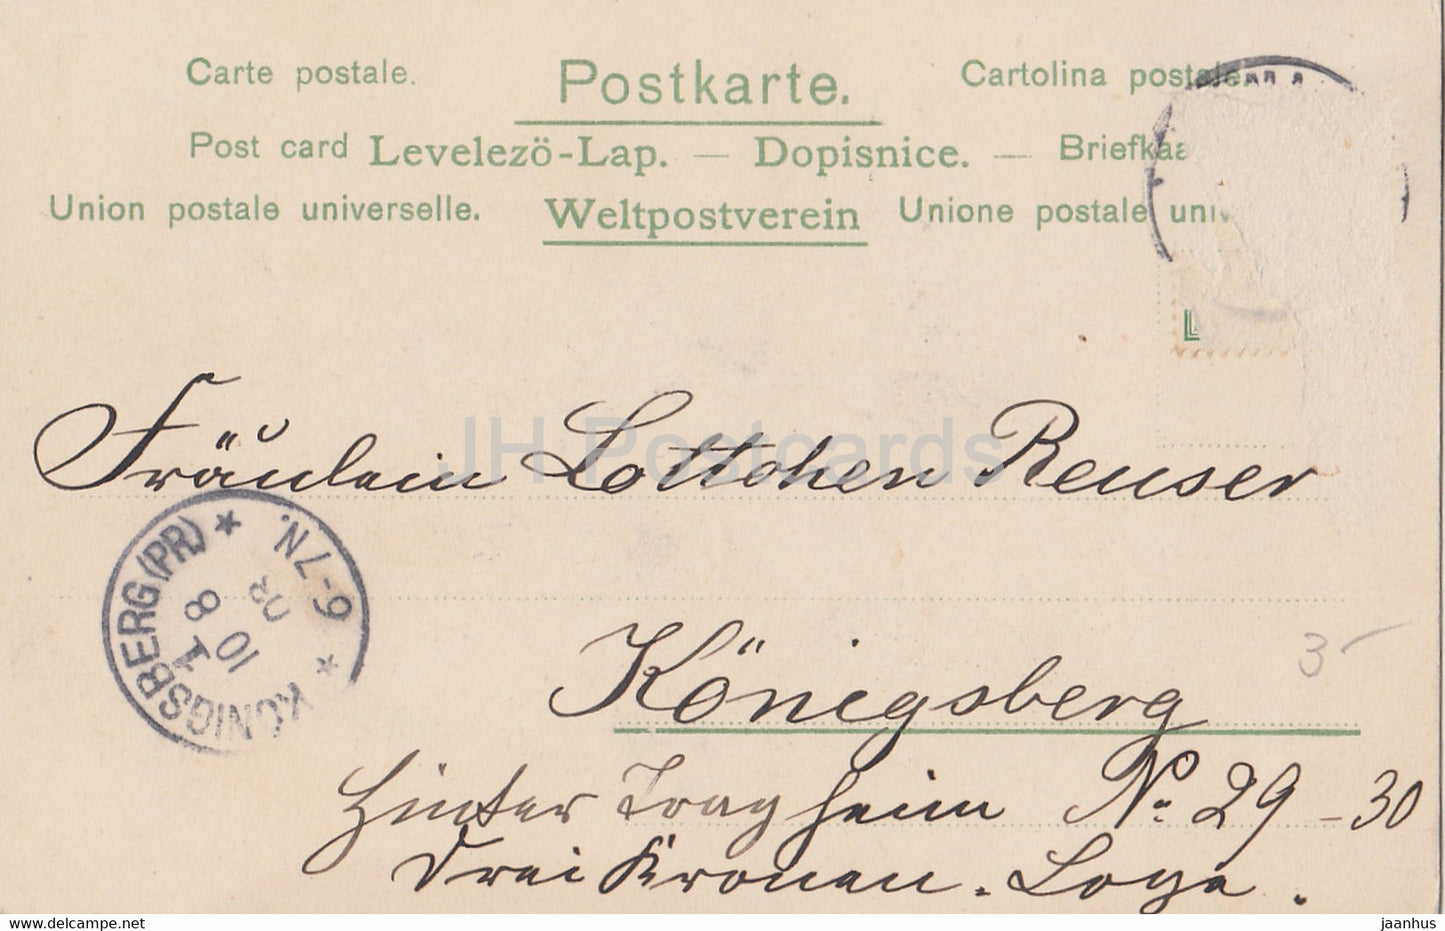 Carte postale. Postkarte. Cartolina postale.
Post card Levelező-Lap. — Dopisnice. — Briefkaa
Union postale universelle. Weltpostverein Unione postale univ
Fräulein Lottchen Reuser
JH Postcards
KÖNIGSBERG (PR) * 6-7N. *
10 8 02
1
Königsberg
Hinter Tragheim No. 29-30
Drei Kronen. Loge.
3-
www.delcampe.net
jaanhus